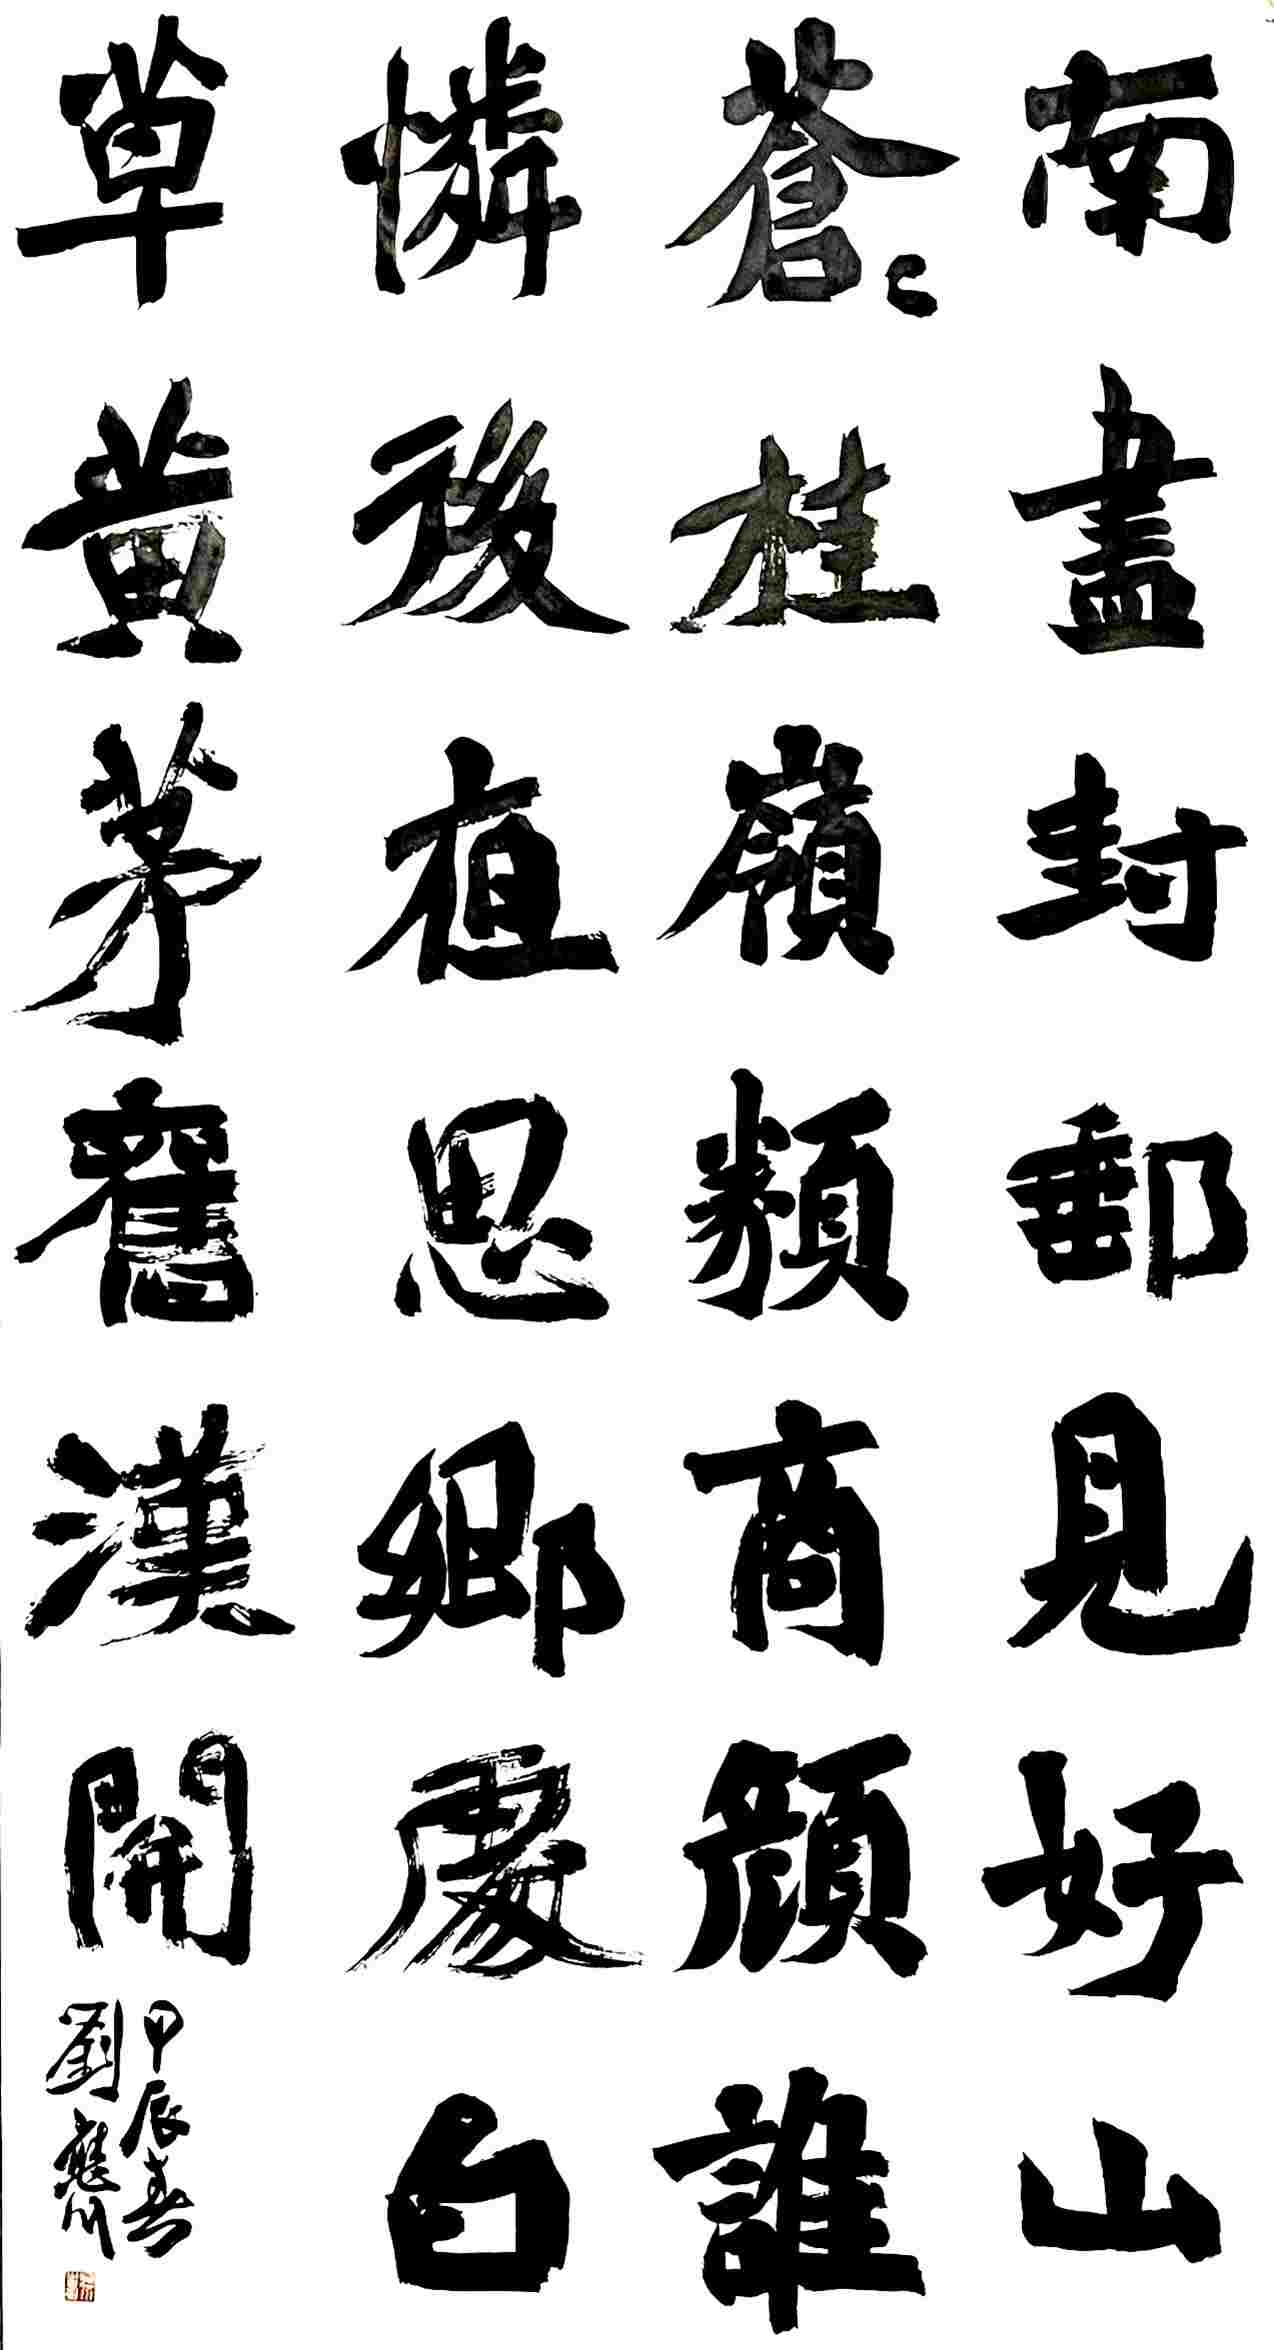 南盡封郵見好山
蒼〻桂嶺類商顏誰
憐後夜思鄉處白
草黃茅舊漢開
甲辰春
劉應門